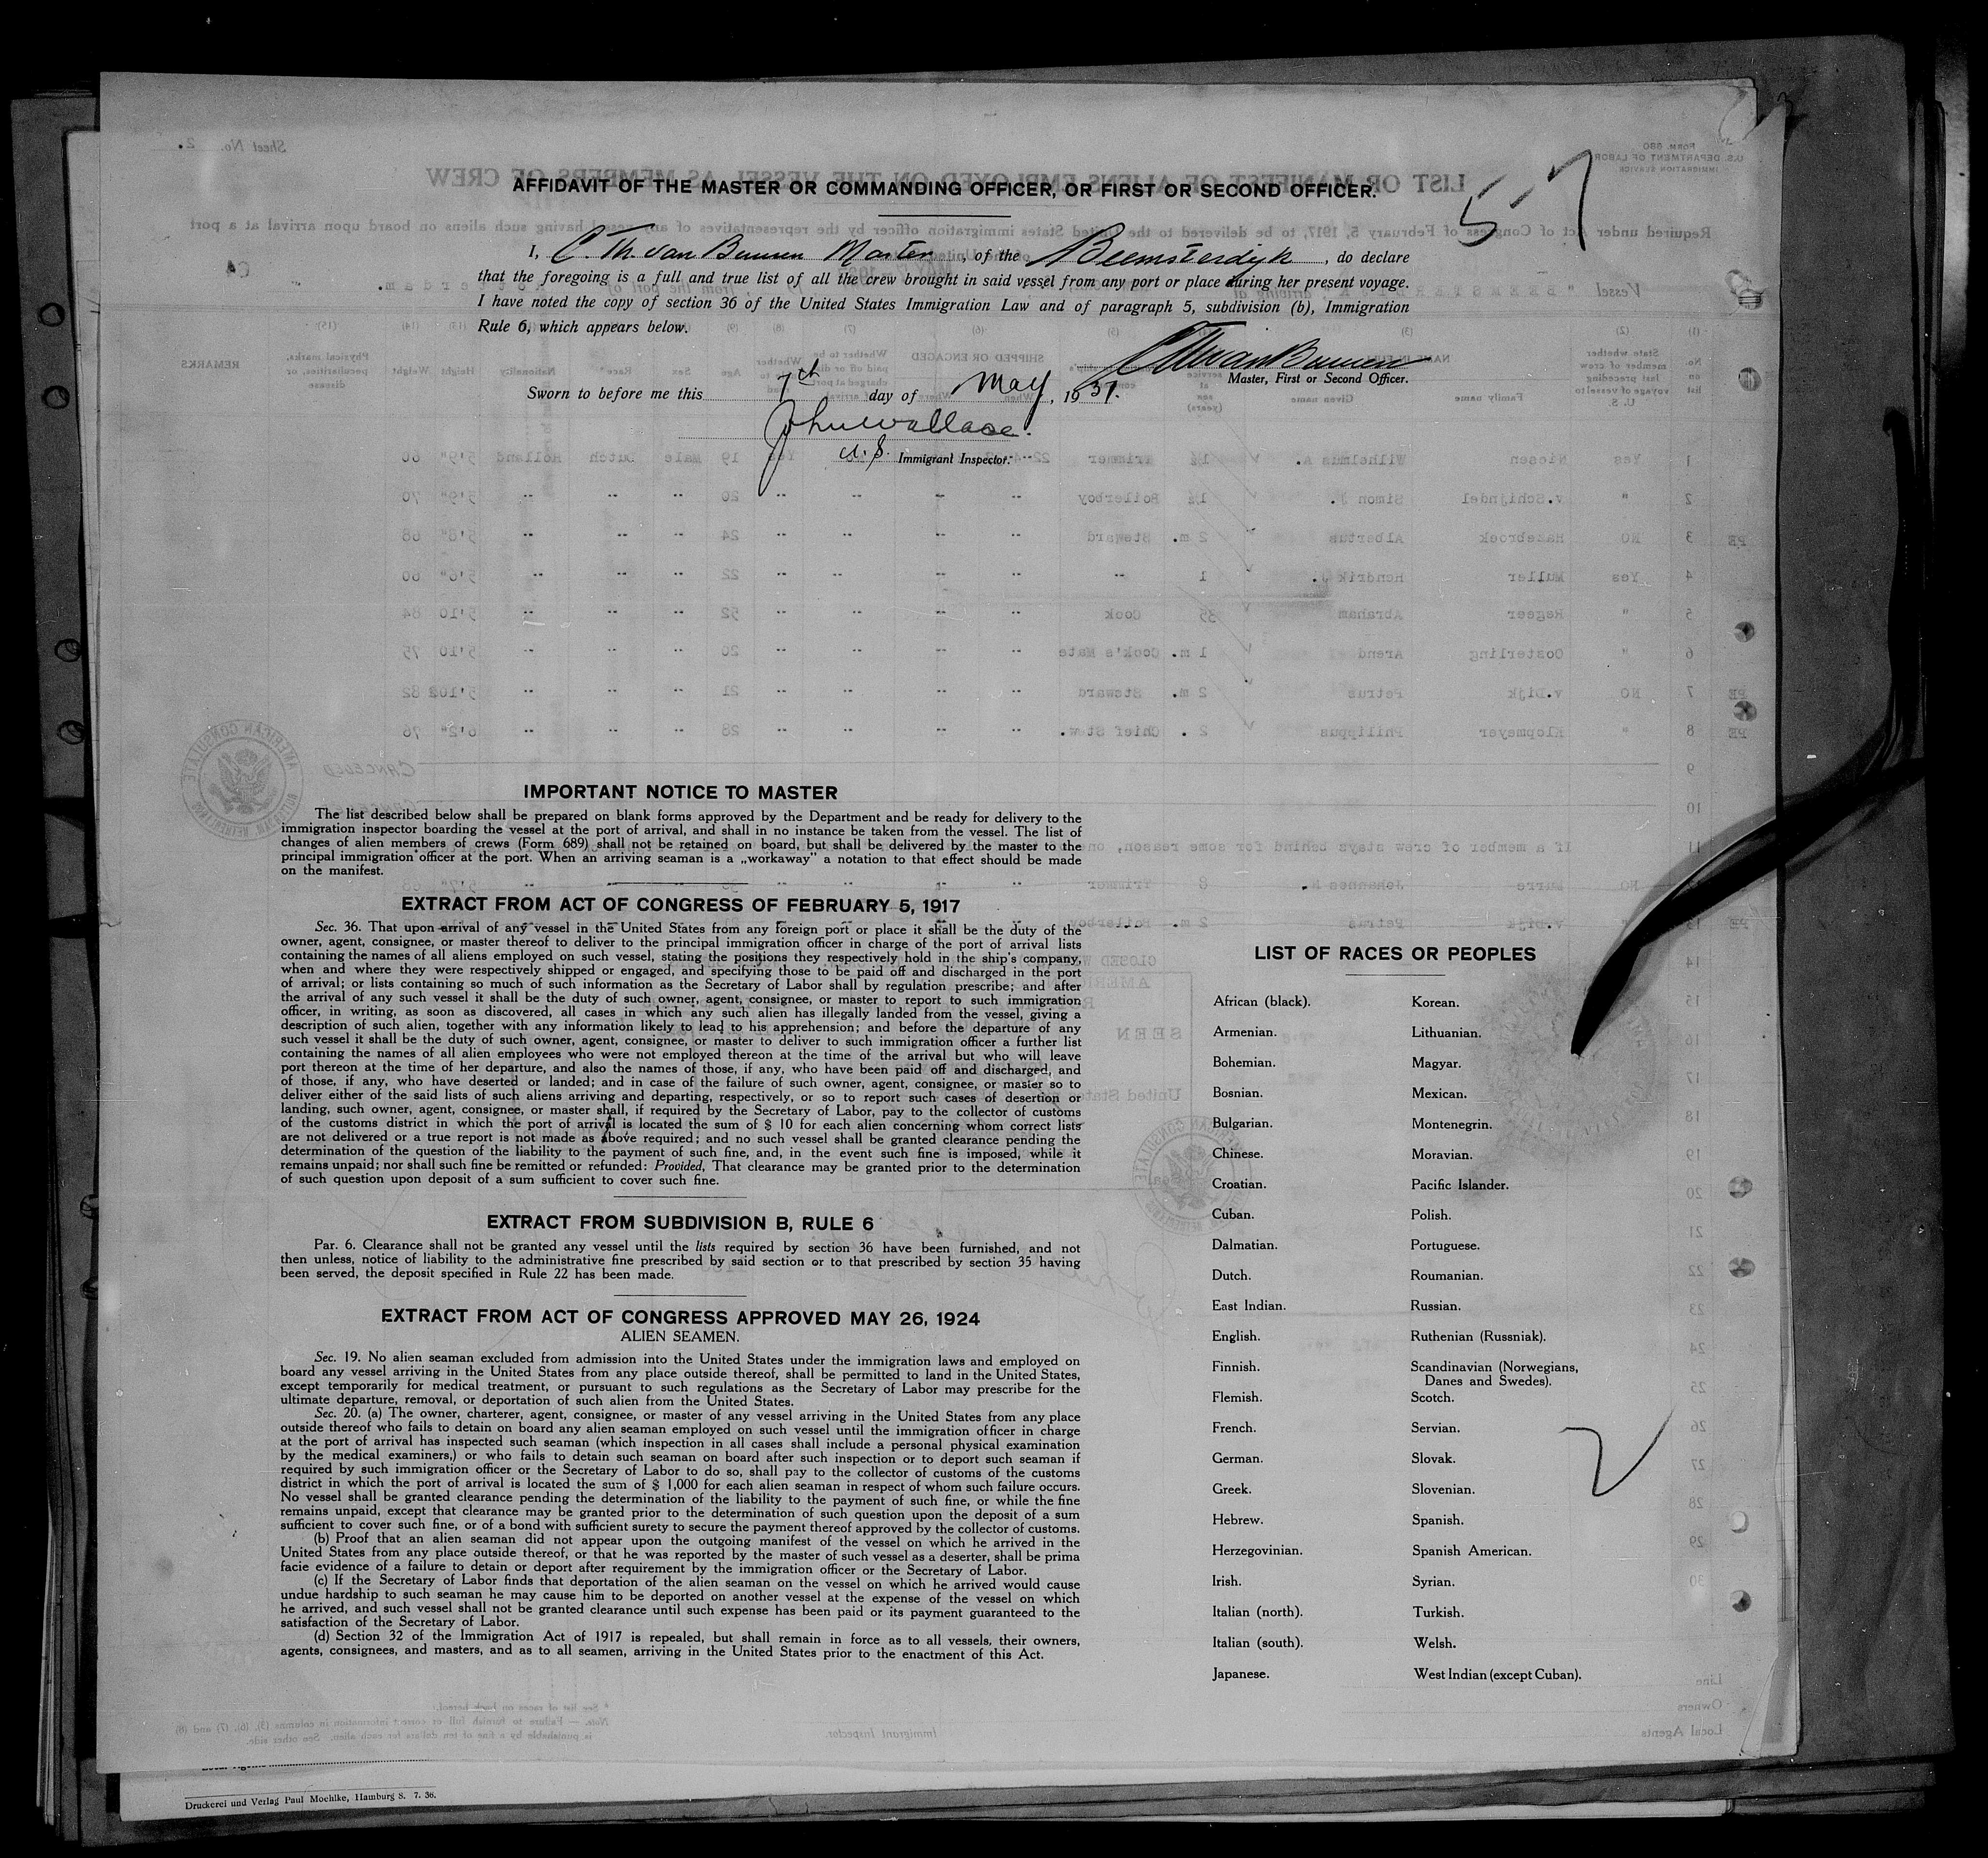 57
AFFIDAVIT OF THE MASTER OR COMMANDING OFFICER, OR FIRST OR SECOND OFFICER.
I, C. Th. van Bunnen Master, of the Beemsterdijk, do declare
that the foregoing is a full and true list of all the crew brought in said vessel from any port or place during her present voyage.
I have noted the copy of section 36 of the United States Immigration Law and of paragraph 5, subdivision (b), Immigration
Rule 6, which appears below.
Master, First or Second Officer.
Sworn to before me this 7th day of May, 1937.
John Wallace.
U.S. Immigrant Inspector.
IMPORTANT NOTICE TO MASTER
The list described below shall be prepared on blank forms approved by the Department and be ready for delivery to the
immigration inspector boarding the vessel at the port of arrival, and shall in no instance be taken from the vessel. The list of
changes of alien members of crews (Form 689) shall not be retained on board, but shall be delivered by the master to the
principal immigration officer at the port. When an arriving seaman is a „workaway" a notation to that effect should be made
on the manifest.
EXTRACT FROM ACT OF CONGRESS OF FEBRUARY 5, 1917
Sec. 36. That upon arrival of any vessel in the United States from any foreign port or place it shall be the duty of the
owner, agent, consignee, or master thereof to deliver to the principal immigration officer in charge of the port of arrival lists
containing the names of all aliens employed on such vessel, stating the positions they respectively hold in the ship's company,
when and where they were respectively shipped or engaged, and specifying those to be paid off and discharged in the port
of arrival; or lists containing so much of such information as the Secretary of Labor shall by regulation prescribe; and after
the arrival of any such vessel it shall be the duty of such owner, agent, consignee, or master to report to such immigration
officer, in writing, as soon as discovered, all cases in which any such alien has illegally landed from the vessel, giving a
description of such alien, together with any information likely to lead to his apprehension; and before the departure of any
such vessel it shall be the duty of such owner, agent, consignee, or master to deliver to such immigration officer a further list
containing the names of all alien employees who were not employed thereon at the time of the arrival but who will leave
port thereon at the time of her departure, and also the names of those, if any, who have been paid off and discharged, and
of those, if any, who have deserted or landed; and in case of the failure of such owner, agent, consignee, or master so to
deliver either of the said lists of such aliens arriving and departing, respectively, or so to report such cases of desertion or
landing, such owner, agent, consignee, or master shall, if required by the Secretary of Labor, pay to the collector of customs
of the customs district in which the port of arrival is located the sum of $ 10 for each alien concerning whom correct lists
are not delivered or a true report is not made as above required; and no such vessel shall be granted clearance pending the
determination of the question of the liability to the payment of such fine, and, in the event such fine is imposed, while it
remains unpaid; nor shall such fine be remitted or refunded: Provided, That clearance may be granted prior to the determination
of such question upon deposit of a sum sufficient to cover such fine.
EXTRACT FROM SUBDIVISION B, RULE 6
Par. 6. Clearance shall not be granted any vessel until the lists required by section 36 have been furnished, and not
then unless, notice of liability to the administrative fine prescribed by said section or to that prescribed by section 35 having
been served, the deposit specified in Rule 22 has been made.
EXTRACT FROM ACT OF CONGRESS APPROVED MAY 26, 1924
ALIEN SEAMEN.
Sec. 19. No alien seaman excluded from admission into the United States under the immigration laws and employed on
board any vessel arriving in the United States from any place outside thereof, shall be permitted to land in the United States,
except temporarily for medical treatment, or pursuant to such regulations as the Secretary of Labor may prescribe for the
ultimate departure, removal, or deportation of such alien from the United States.
Sec. 20. (a) The owner, charterer, agent, consignee, or master of any vessel arriving in the United States from any place
outside thereof who fails to detain on board any alien seaman employed on such vessel until the immigration officer in charge
at the port of arrival has inspected such seaman (which inspection in all cases shall include a personal physical examination
by the medical examiners,) or who fails to detain such seaman on board after such inspection or to deport such seaman if
required by such immigration officer or the Secretary of Labor to do so, shall pay to the collector of customs of the customs
district in which the port of arrival is located the sum of $ 1,000 for each alien seaman in respect of whom such failure occurs.
No vessel shall be granted clearance pending the determination of the liability to the payment of such fine, or while the fine
remains unpaid, except that clearance may be granted prior to the determination of such question upon the deposit of a sum
sufficient to cover such fine, or of a bond with sufficient surety to secure the payment thereof approved by the collector of customs.
(b) Proof that an alien seaman did not appear upon the outgoing manifest of the vessel on which he arrived in the
United States from any place outside thereof, or that he was reported by the master of such vessel as a deserter, shall be prima
facie evidence of a failure to detain or deport after requirement by the immigration officer or the Secretary of Labor.
(c) If the Secretary of Labor finds that deportation of the alien seaman on the vessel on which he arrived would cause
undue hardship to such seaman he may cause him to be deported on another vessel at the expense of the vessel on which
he arrived, and such vessel shall not be granted clearance until such expense has been paid or its payment guaranteed to the
satisfaction of the Secretary of Labor.
(d) Section 32 of the Immigration Act of 1917 is repealed, but shall remain in force as to all vessels, their owners,
agents, consignees, and masters, and as to all seamen, arriving in the United States prior to the enactment of this Act.
LIST OF RACES OR PEOPLES
African (black).
Armenian.
Bohemian.
Bosnian.
Bulgarian.
Chinese.
Croatian.
Cuban.
Dalmatian.
Dutch.
East Indian.
English.
Finnish.
Flemish.
French.
German.
Greek.
Hebrew.
Herzegovinian.
Irish.
Italian (north).
Italian (south).
Japanese.
Korean.
Lithuanian.
Magyar.
Mexican.
Montenegrin.
Moravian.
Pacific Islander.
Polish.
Portuguese.
Roumanian.
Russian.
Ruthenian (Russniak).
Scandinavian (Norwegians,
Danes and Swedes).
Scotch.
Servian.
Slovak.
Slovenian.
Spanish.
Spanish American.
Syrian.
Turkish.
Welsh.
West Indian (except Cuban).
Druckerei und Verlag Paul Moehlke, Hamburg 8. 7. 36.